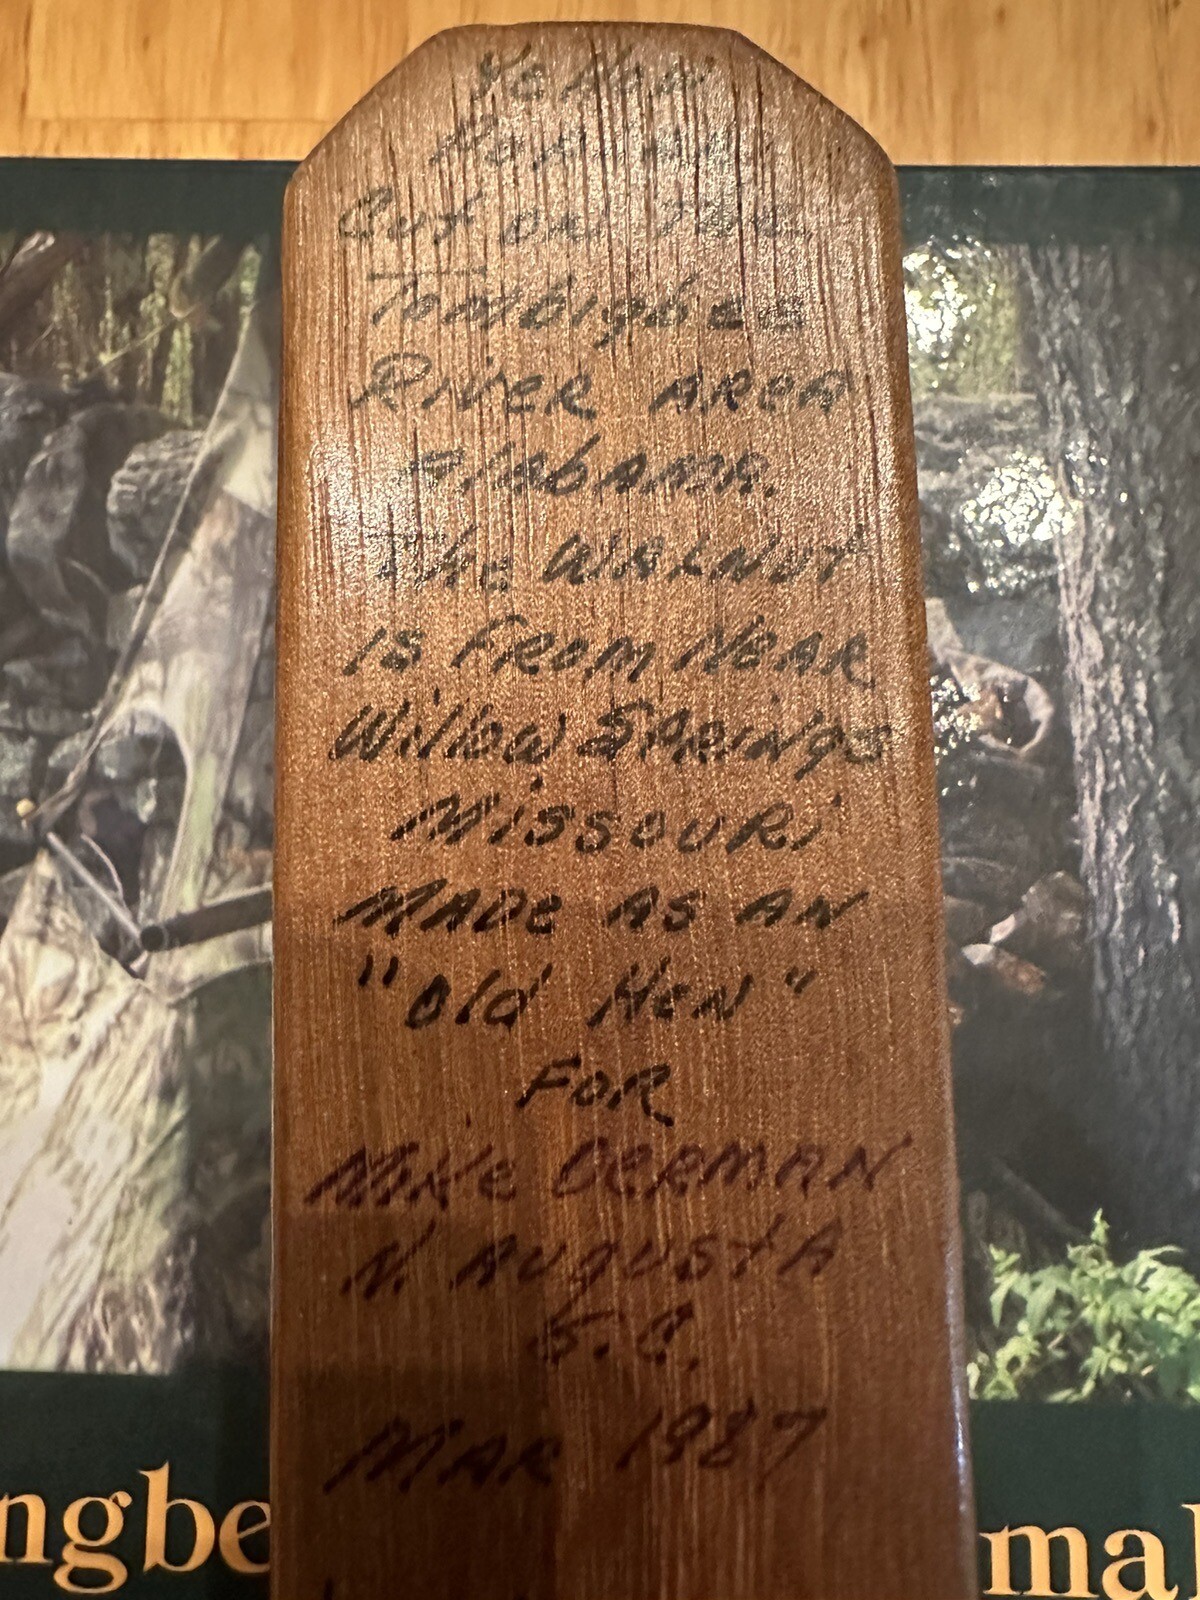 Yellow
Poplar
Cut on the
Tombigbee
River Area
Alabama.
The Walnut
is from Near
Willow Springs
Missouri
Made as an
"Old Hen"
For
Mike Derman
N. Augusta
S.C.
Mar 1987
ngbe
mal